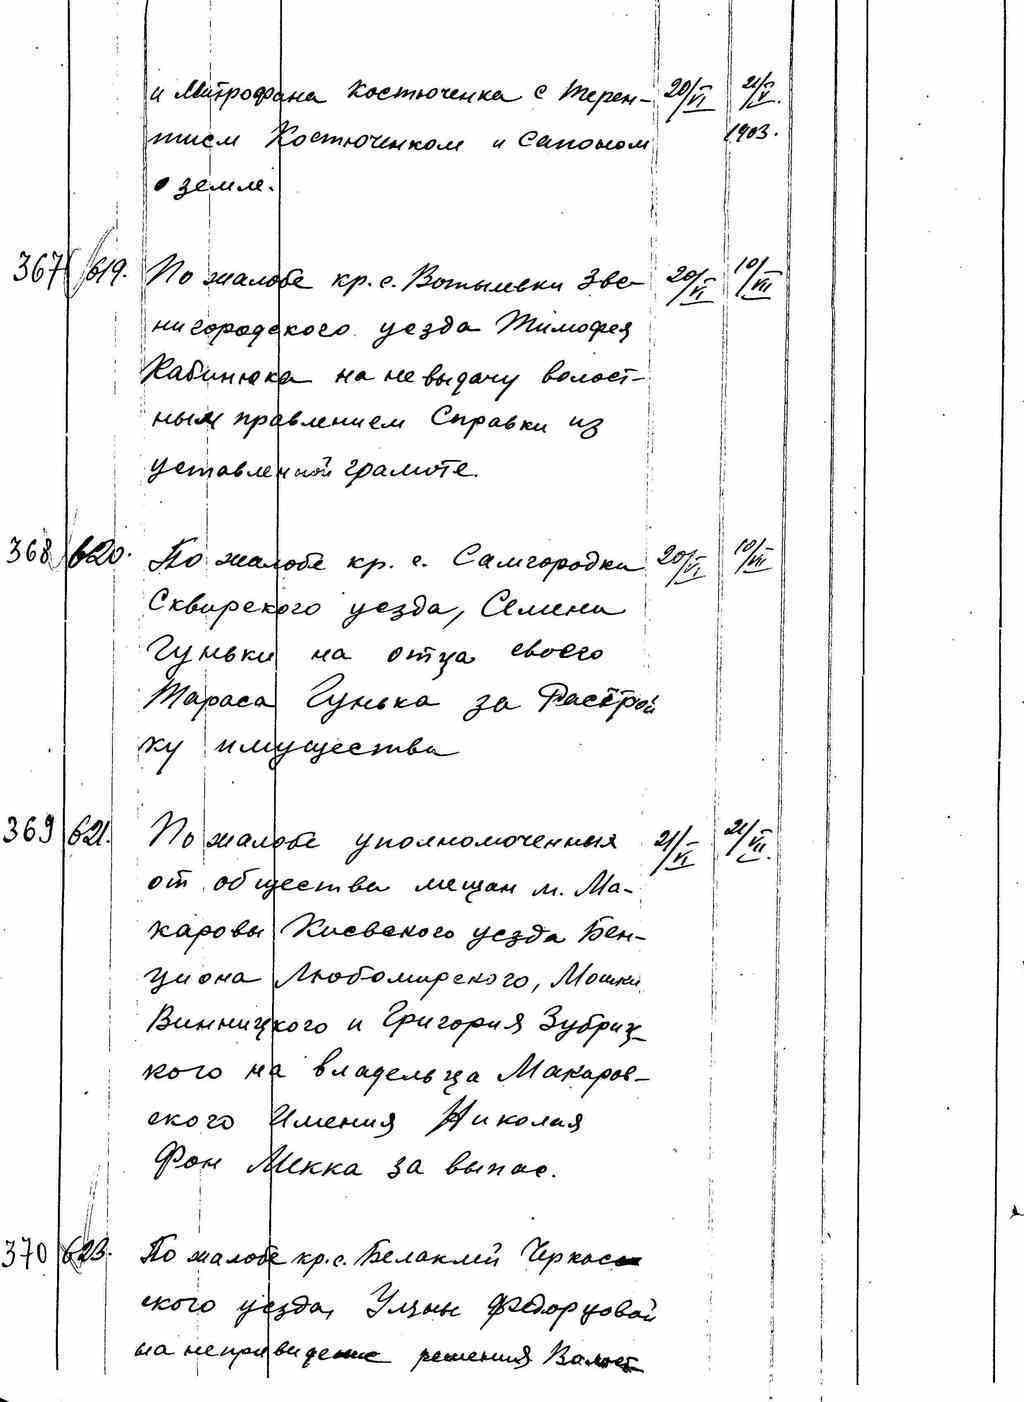 и Митрофана Костюченка с Терен- 20/VI 21/V.
тием Костюченком и Сапоном 1903.
о земле.
367 619. По жалобе кр. с. Вотылевки Зве- 20/VI 10/VIII
нигородского уезда Тимофея
Кабинюка на невыдачу волост-
ным правлением Справки из
уставленной грамоте.
368 620. По жалобе кр. с. Самгородка 20/VI 10/VIII
Сквирского уезда, Семена
Гуньки на отца своего
Тараса Гунька за Растрой
ку имущества
369 621. По жалобе уполномоченныя 21/VI 21/VIII.
от общества мещан м. Ма-
каровы Киевского уезда Бен-
циона Любомирского, Мошки
Винницкого и Григория Зубриц-
кого на владельца Макаров-
ского Имения Николая
Фон Мекка за выпас.
370 623. По жалобе кр. с. Белаклей Черкас
ского уезда, Федорцовой
на неприведение решения Волост